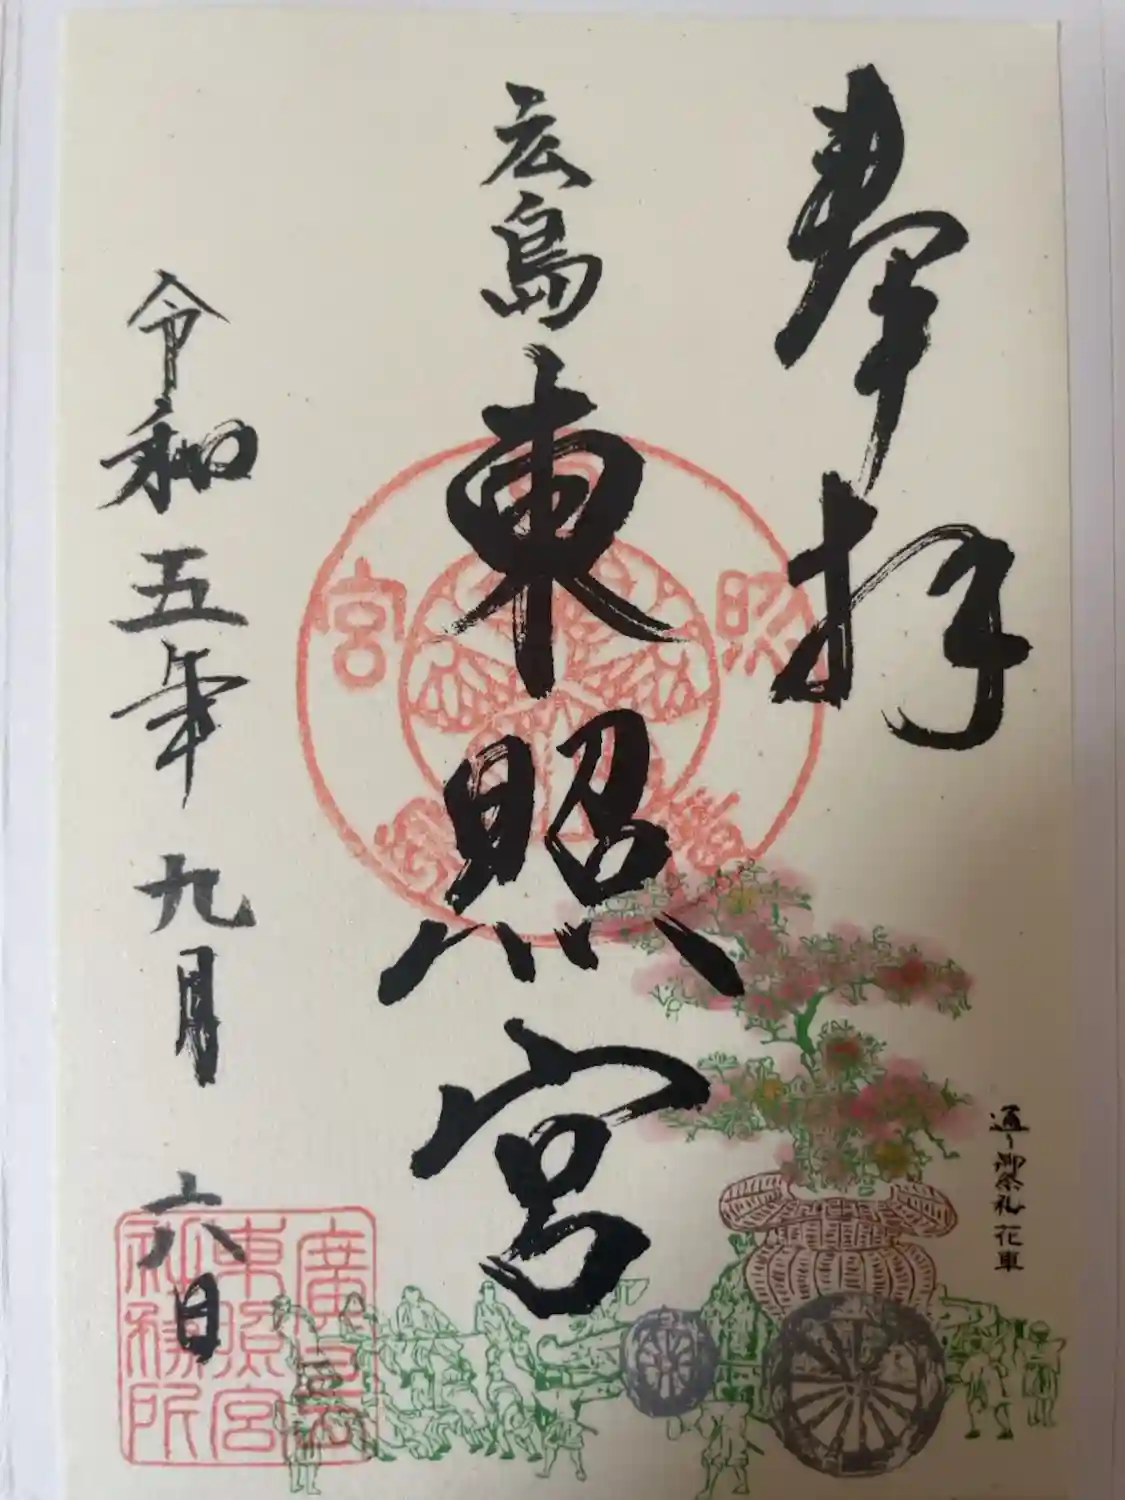 奉拝
広島
東照宮
令和五年九月六日
通り御祭礼 花車
照
宮
廣島
東照宮
社務所